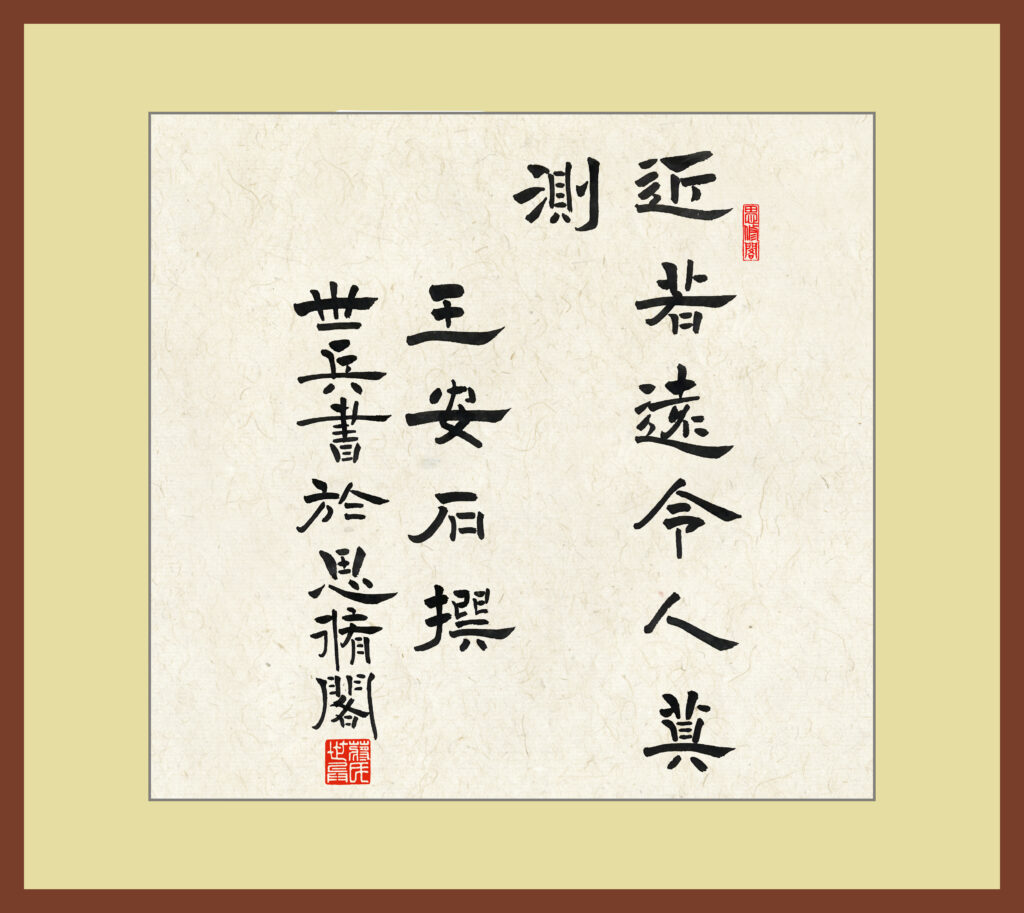 思修閣
近若遠令人莫
測
王安石撰
世兵書於思脩閣